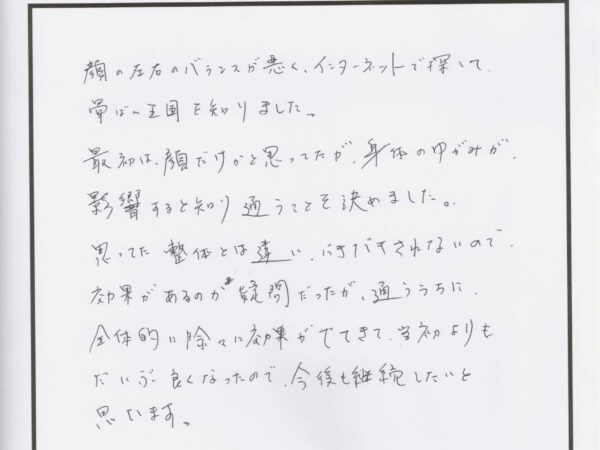 顔の左右のバランスが悪く、インターネットで探して、
骨ばん王国を知りました。
最初は、顔だけかと思ってたが、身体のゆがみが、
影響すると知り通うことを決めました。
思ってた整体とは違い、バキバキされないので、
効果があるのか疑問だったが、通ううちに、
全体的に除々に効果がでてきて、当初よりも
だいぶ良くなったので、今後も継続したいと
思います。